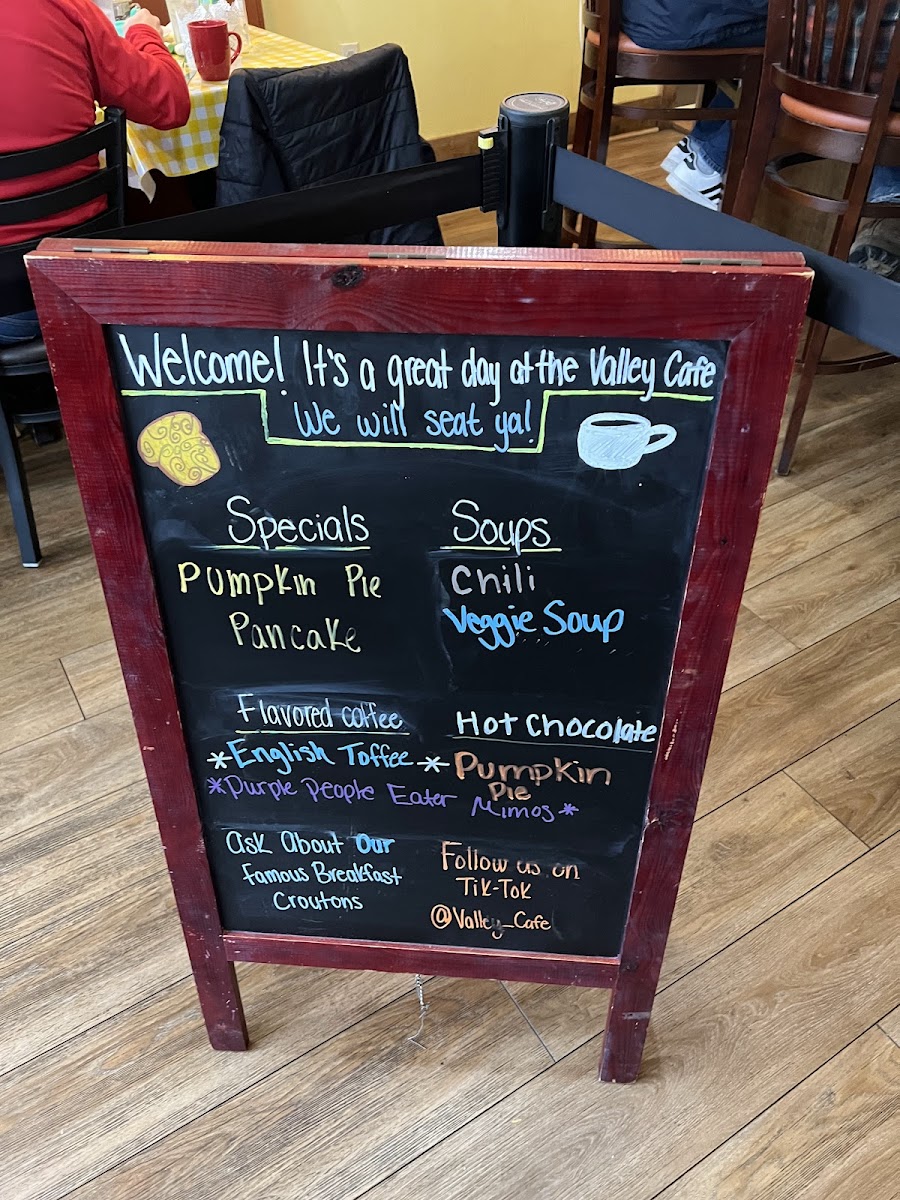 Welcome! It's a great day at the Valley Cafe
We will seat ya!
Specials
Pumpkin Pie
Pancake
Soups
Chili
Veggie Soup
Flavored coffee
*English Toffee*
Hot Chocolate
Pumpkin
Pie
*Purple People Eater Mimos*
Ask About Our
Famous Breakfast
Croutons
Follow us on
Tik-Tok
@Valley_Cafe